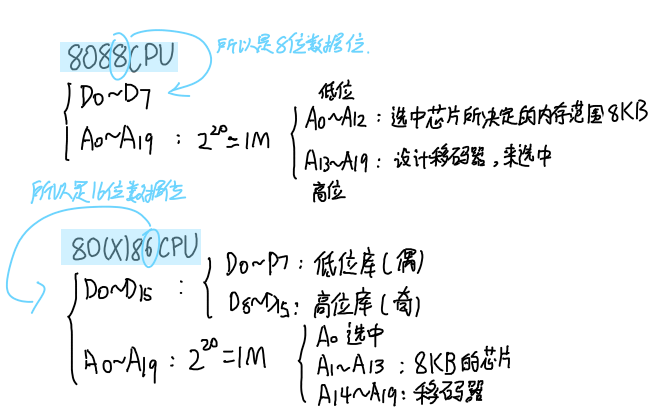 所以是8位数据位.
8088CPU
D0~D7
A0~A19 : 2^20=1M
低位
A0~A12 : 选中芯片所决定的内存范围8KB
A13~A19 : 设计移码器,来选中
高位
所以是16位数据位
80(X)86CPU
D0~D15 :
D0~D7 : 低位库(偶)
D8~D15 : 高位库(奇)
A0~A19 : 2^20=1M
A0 选中
A1~A13 : 8KB的芯片
A14~A19 : 移码器